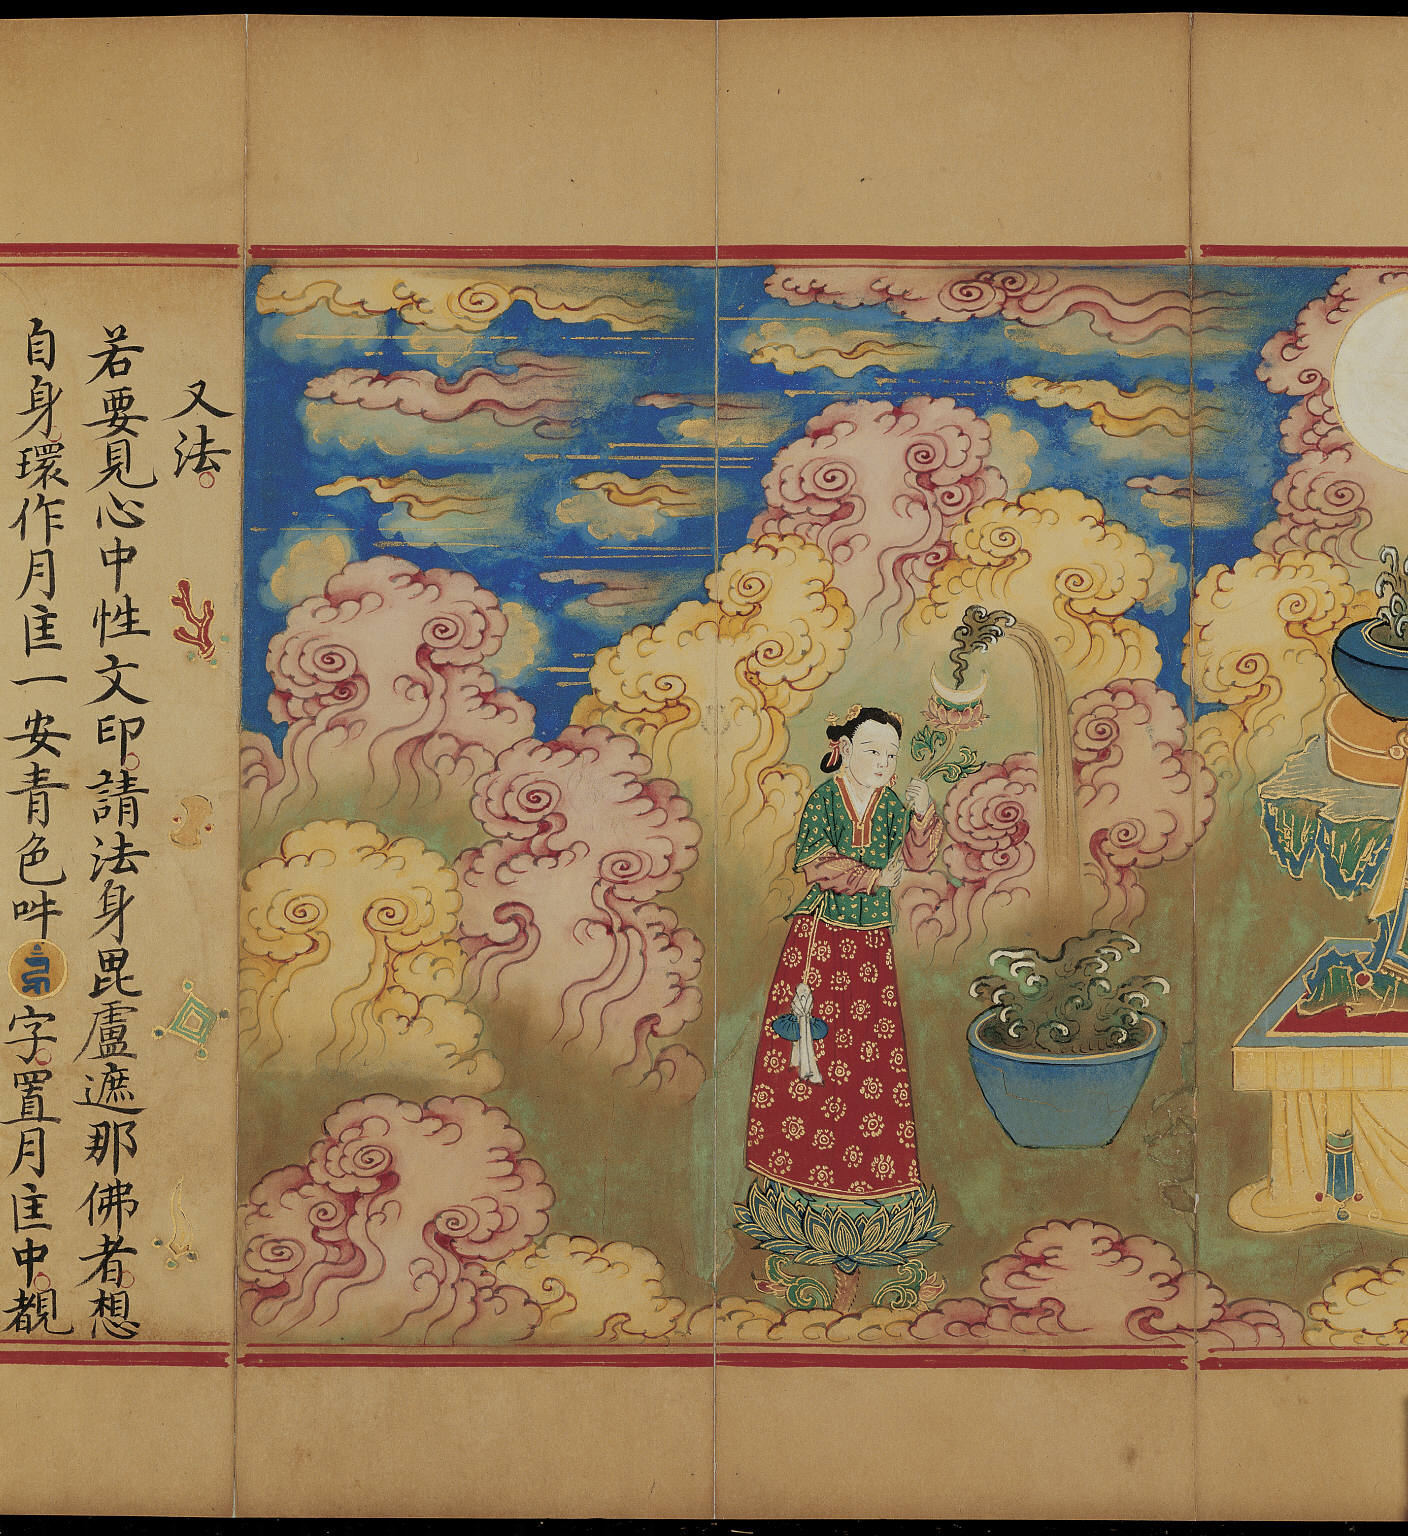 又法
若要見心中性文印請法身毘盧遮那佛者想
自身環作月𭅺一安青色吽字置月𭅺中覩